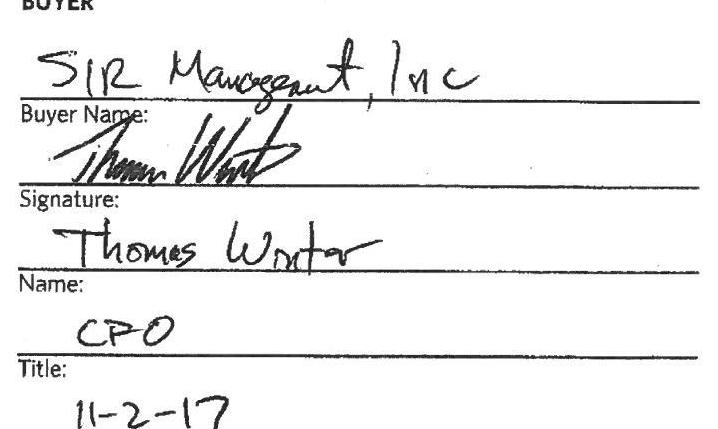 BUYER
SIR Management, Inc
Buyer Name:
Thomas Winter
Signature:
Thomas Winter
Name:
CFO
Title:
11-2-17